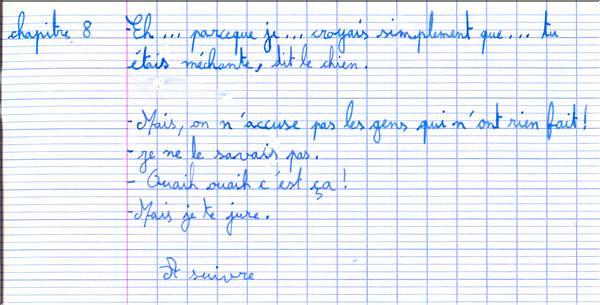 chapitre 8 -Eh ... parceque je ... croyais simplement que ... tu
étais méchante, dit le chien.
-Mais, on n'accuse pas les gens qui n'ont rien fait!
-je ne le savais pas.
-Ouaih ouaih c'est ça!
-Mais je te jure.
A suivre